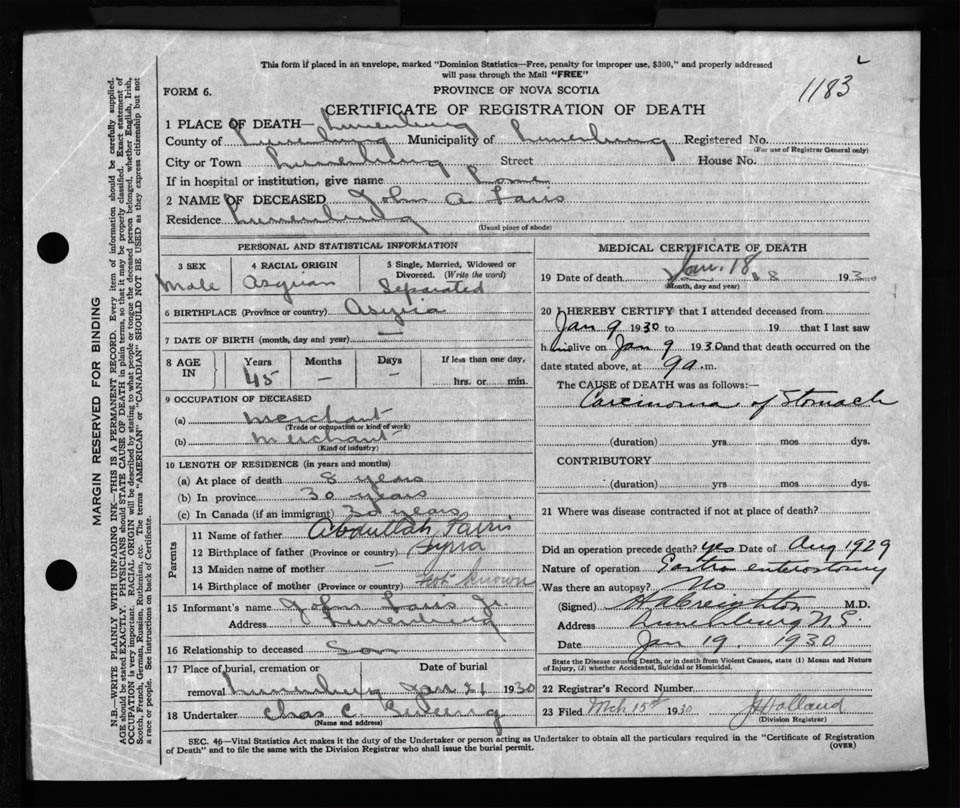 This form if placed in an envelope, marked "Dominion Statistics—Free, penalty for improper use, $300," and properly addressed
will pass through the Mail "FREE"
FORM 6.
PROVINCE OF NOVA SCOTIA
1183
CERTIFICATE OF REGISTRATION OF DEATH
1 PLACE OF DEATH— Lunenburg
County of Lunenburg Municipality of Lunenburg Registered No.
(For use of Registrar General only)
City or Town Lunenburg Street House No.
If in hospital or institution, give name
2 NAME OF DECEASED John A Faris
Residence Lunenburg
(Usual place of abode)
PERSONAL AND STATISTICAL INFORMATION
3 SEX
Male
4 RACIAL ORIGIN
Asyrian
5 Single, Married, Widowed or
Divorced. (Write the word)
Separated
6 BIRTHPLACE (Province or country) Asyria
7 DATE OF BIRTH (month, day and year) —
8 AGE IN
Years Months Days If less than one day,
45 — — hrs. or min.
9 OCCUPATION OF DECEASED
(a) Merchant
(Trade or occupation or kind of work)
(b) Merchant
(Kind of industry)
10 LENGTH OF RESIDENCE (in years and months)
(a) At place of death 8 years
(b) In province 30 years
(c) In Canada (if an immigrant) 30 years
Parents
11 Name of father Abdullah Farris
12 Birthplace of father (Province or country) Syria
13 Maiden name of mother —
14 Birthplace of mother (Province or country) Not known
15 Informant's name John Faris Jr.
Address Lunenburg
16 Relationship to deceased Son
17 Place of burial, cremation or Date of burial
removal Lunenburg Jan 21 1930
18 Undertaker Chas C.
(Name and address)
MEDICAL CERTIFICATE OF DEATH
19 Date of death Jan. 18 18 1930
(Month, day and year)
20 I HEREBY CERTIFY that I attended deceased from
Jan 9 1930 to 19 that I last saw
him alive on Jan 9 1930 and that death occurred on the
date stated above, at 9 a.m.
The CAUSE of DEATH was as follows:—
Carcinoma of Stomach
(duration) yrs mos dys.
CONTRIBUTORY
(duration) yrs mos dys.
21 Where was disease contracted if not at place of death?
Did an operation precede death? yes Date of Aug 1929
Nature of operation Gastro enterostomy
Was there an autopsy? No
(Signed) Creighton M.D.
Address Lunenburg N.S.
Date Jan 19, 1930
State the Disease causing Death, or in death from Violent Causes, state (1) Means and Nature
of Injury, (2) whether Accidental, Suicidal or Homicidal.
22 Registrar's Record Number
23 Filed Mch 15th 1930 Holland
(Division Registrar)
SEC. 46—Vital Statistics Act makes it the duty of the Undertaker or person acting as Undertaker to obtain all the particulars required in the "Certificate of Registration
of Death" and to file the same with the Division Registrar who shall issue the burial permit.
(OVER)
MARGIN RESERVED FOR BINDING
N.B.—WRITE PLAINLY WITH UNFADING INK—THIS IS A PERMANENT RECORD. Every item of information should be carefully supplied.
AGE should be stated EXACTLY. PHYSICIANS should STATE CAUSE OF DEATH in plain terms, so that it may be properly classified. Exact statement of
OCCUPATION is very important. RACIAL ORIGIN will be described by stating to what people or tongue the deceased person belonged, whether English, Irish,
Scotch, French, German, Russian, Ruthenian, etc. The terms "AMERICAN" or "CANADIAN" SHOULD NOT BE USED as they express citizenship but not
a race or people. See instructions on back of Certificate.